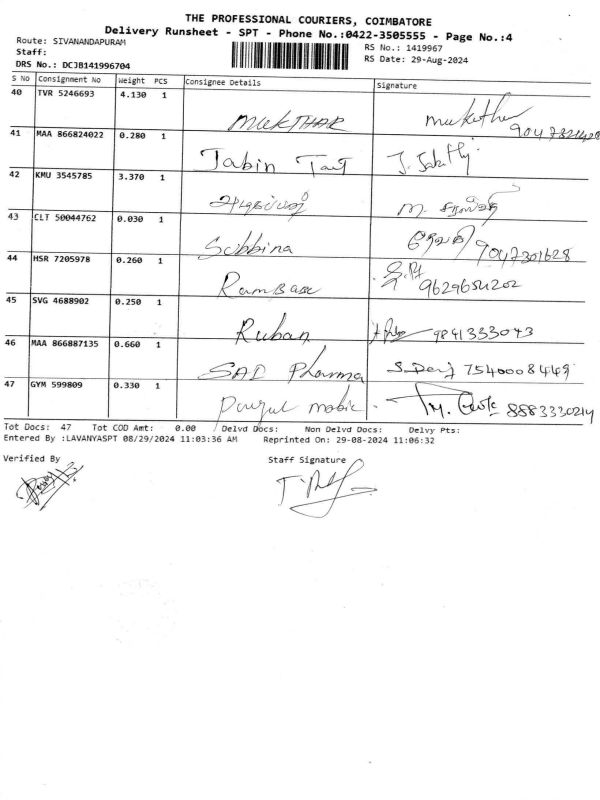 THE PROFESSIONAL COURIERS, COIMBATORE
Delivery Runsheet - SPT - Phone No.:0422-3505555 - Page No.:4
Route: SIVANANDAPURAM RS No.: 1419967
Staff: RS Date: 29-Aug-2024
DRS No.: DCJB141996704
S No Consignment No Weight PCS Consignee Details Signature
40 TVR 5246693 4.130 1
MUKTHAR
41 MAA 866824022 0.280 1
Jabin
42 KMU 3545785 3.370 1
43 CLT 50044762 0.030 1
Sobbina 9047301628
44 HSR 7205978 0.260 1
9629654202
45 SVG 4688902 0.250 1
Ruban 9841333043
46 MAA 866887135 0.660 1
SAI Pharma 7540008449
47 GYM 599809 0.330 1
8883330214
Tot Docs: 47 Tot COD Amt: 0.00 Delvd Docs: Non Delvd Docs: Delvy Pts:
Entered By :LAVANYASPT 08/29/2024 11:03:36 AM Reprinted On: 29-08-2024 11:06:32
Verified By Staff Signature